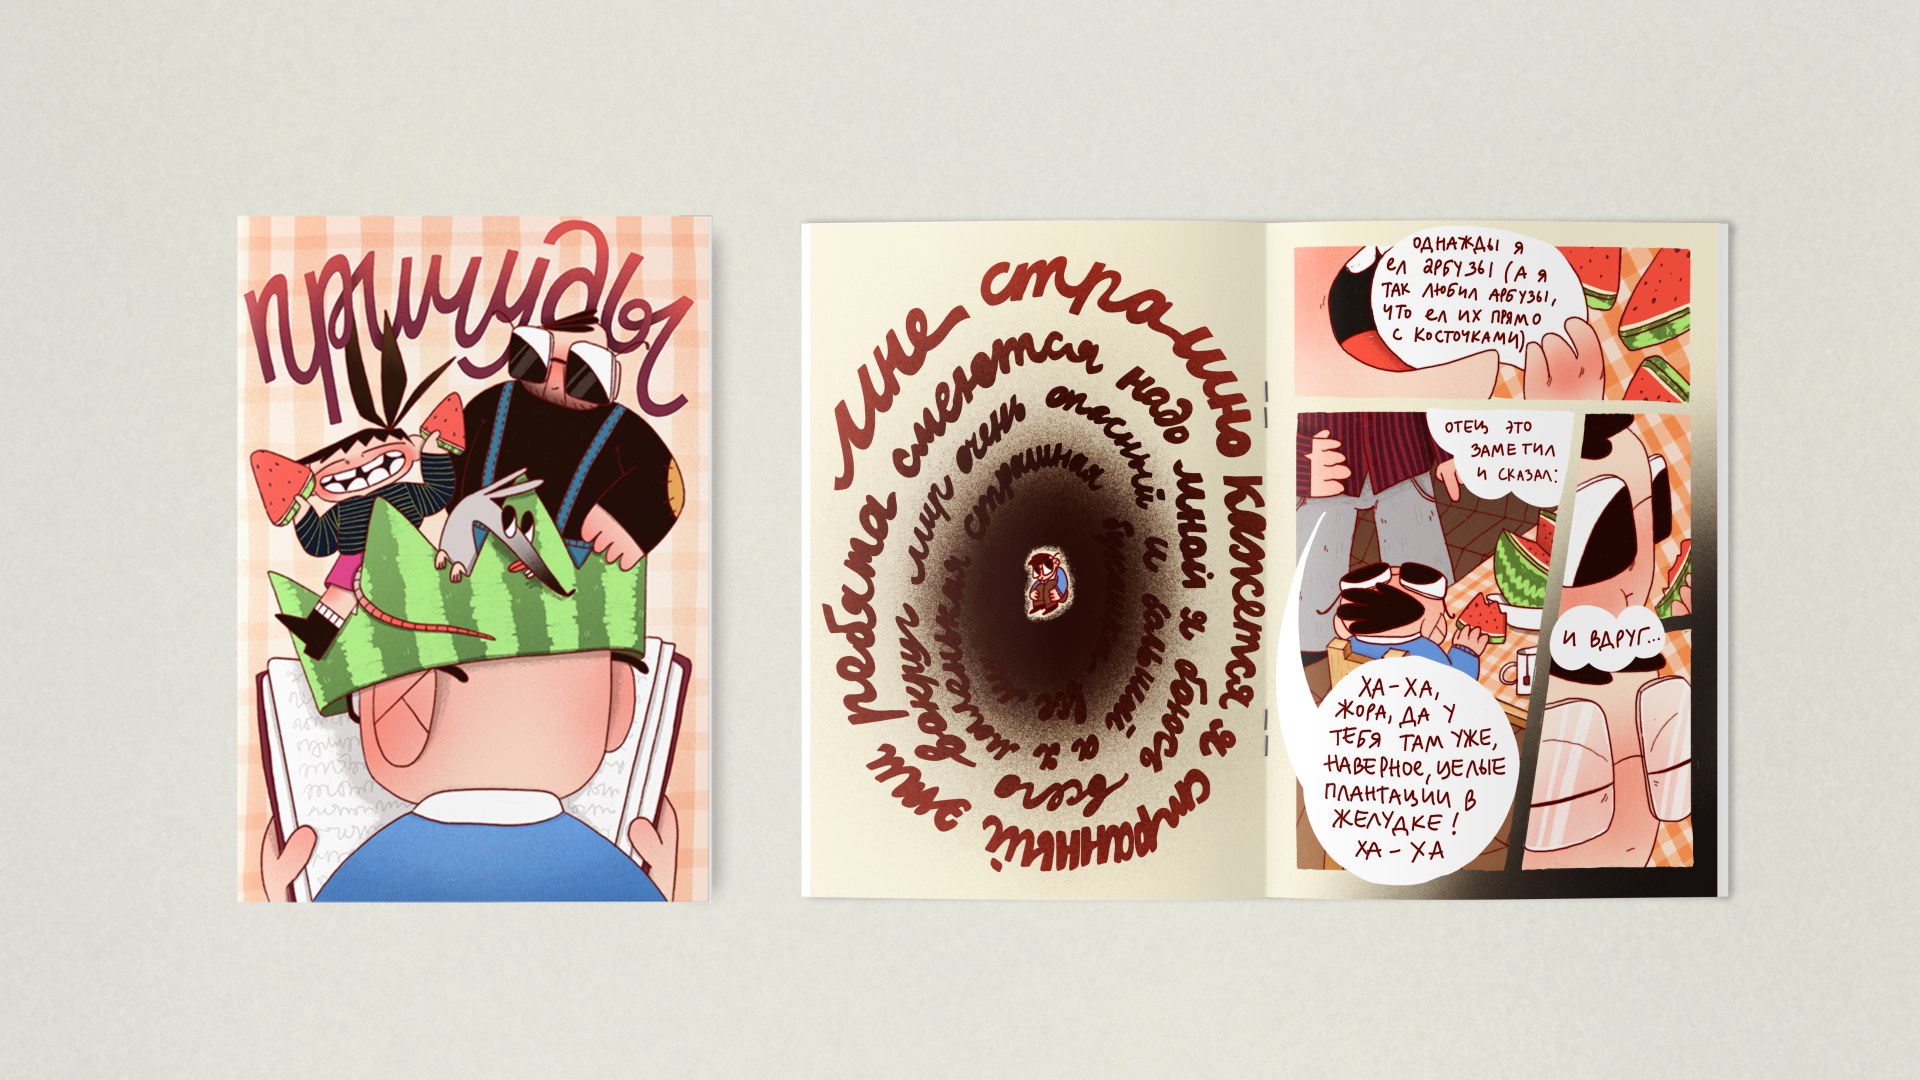 причуды
мне страшно кажется я странный
эти ребята смеются надо мной я боюсь всего
вокруг мир очень опасный и большой а я
маленькая страшная
все
ОДНАЖДЫ Я
ЕЛ АРБУЗЫ (А Я
ТАК ЛЮБИЛ АРБУЗЫ,
ЧТО ЕЛ ИХ ПРЯМО
С КОСТОЧКАМИ)
ОТЕЦ ЭТО
ЗАМЕТИЛ
И СКАЗАЛ:
И ВДРУГ...
ХА-ХА,
ЖОРА, ДА У
ТЕБЯ ТАМ УЖЕ,
НАВЕРНОЕ, ЦЕЛЫЕ
ПЛАНТАЦИИ В
ЖЕЛУДКЕ!
ХА-ХА